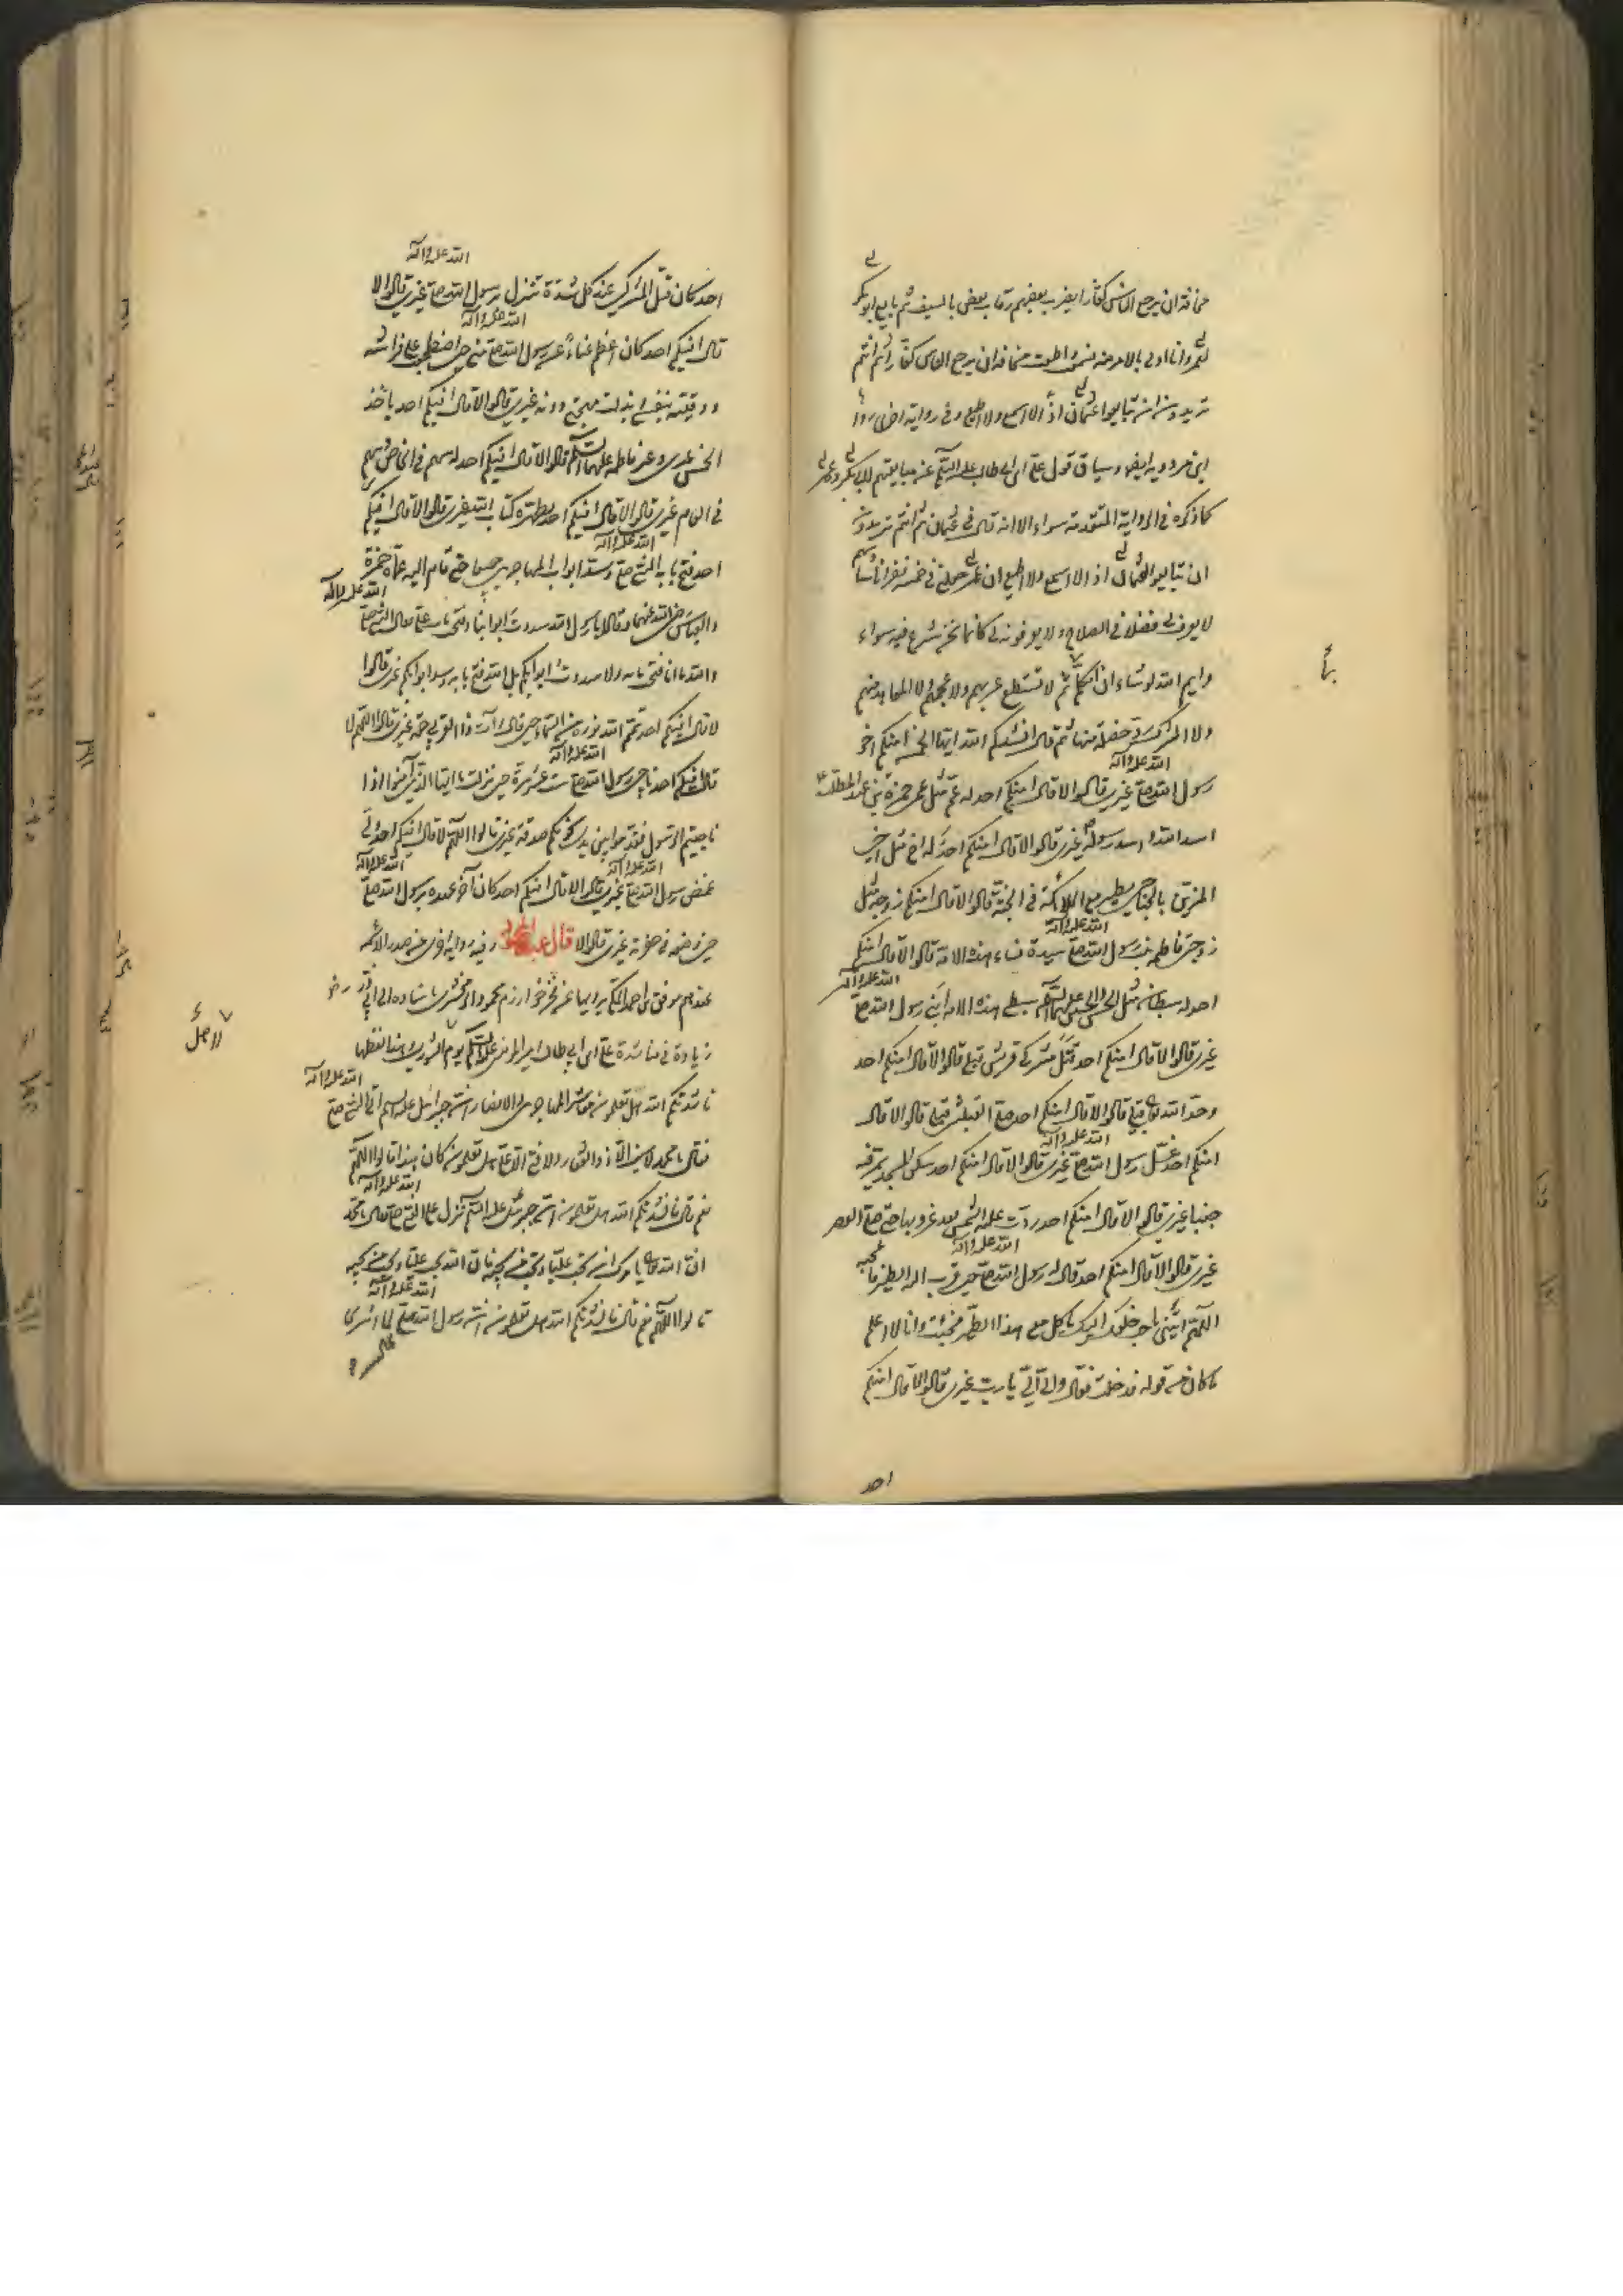 مخافة ان يرجع الناس كفارا يضرب بعضهم رقاب بعض بالسيف ثم بايع ابو بكر
لعمر وانا اولى بالامر منه فسمعت واطعت مخافة ان يرجع الناس كفارا ثم انتم
تريدون ان تبايعوا عثمان اذا لا اسمع ولا اطيع وفي رواية اخرى رواها
ابن مردويه ايضا وساق قول علي بن ابي طالب عليه السلام عن مبايعتهم لابي بكر وعمر
كما ذكره في الرواية المتقدمة سواء الا انه قال في عثمان ثم انتم تريدون
ان تبايعوا عثمان اذا لا اسمع ولا اطيع ان عمر جعلني في خمسة نفر انا سادسهم
لا يعرف لي فضلا في الصلاح ولا يعرفونه لي كانما نحن شرع فيه سواء
وايم الله لو شاء ان اتكلم ثم لا يستطيع عربيهم ولا عجميهم ولا المعاهد منهم
ولا المشرك رد خصلة منها ثم قال انشدكم الله ايها الخمسة امنكم اخو
رسول الله صلى الله عليه وآله غيري قالوا لا قال امنكم احد له عم مثل عمي حمزة بن عبد المطلب
اسد الله واسد رسوله غيري قالوا لا قال امنكم احد له اخ مثل اخي
المزين بالجناحين يطير مع الملائكة في الجنة قالوا لا قال امنكم احد له زوجة مثل
زوجتي فاطمة بنت رسول الله صلى الله عليه وآله سيدة نساء هذه الامة قالوا لا قال امنكم
احد له سبطان مثل الحسن والحسين عليهما السلام سبطي هذه الامة ابني رسول الله صلى الله عليه وآله
غيري قالوا لا قال امنكم احد قتل مشركي قريش قبلي قالوا لا قال امنكم احد
وحد الله تعالى قبلي قالوا لا قال امنكم احد صلى القبلتين قبلي قالوا لا قال
امنكم احد غسل رسول الله صلى الله عليه وآله غيري قالوا لا قال امنكم احد سكن المسجد يمر فيه
جنبا غيري قالوا لا قال امنكم احد ردت عليه الشمس بعد غروبها حتى صلى العصر
غيري قالوا لا قال امنكم احد قال له رسول الله صلى الله عليه وآله حين قرب اليه الطير فاعجبه
اللهم ائتني باحب خلقك اليك ياكل معي هذا الطير فجئت وانا لا اعلم
ما كان من قوله فدخلت فقال والي يا رب غيري قالوا لا قال امنكم
احد
احد كان اقتل المشركين عند كل شدة تنزل برسول الله صلى الله عليه وآله غيري قالوا لا
قال افيكم احد كان اعظم غناء عن رسول الله صلى الله عليه وآله مني حين اضطجعت على فراشه
ووقيته بنفسي وبذلت مهجتي دونه غيري قالوا لا قال افيكم احد ياخذ
الخمس غيري وغير فاطمة عليها السلام قالوا لا قال افيكم احد له سهم في الخاص وسهم
في العام غيري قالوا لا قال افيكم احد يطهره كتاب الله غيري قالوا لا قال افيكم
احد فتح بابه النبي صلى الله عليه وآله وسد ابواب المهاجرين جميعا حتى قام اليه عماه حمزة
والعباس رضي الله عنهما وقالا يا رسول الله سددت ابوابنا وفتحت باب علي فقال النبي صلى الله عليه وآله
والله ما انا فتحت بابه ولا سددت ابوابكم بل الله فتح بابه وسد ابوابكم غيري قالوا
لا قال افيكم احد تمم الله نوره من السماء حين قال وآت ذا القربى حقه غيري قالوا اللهم لا
قال افيكم احد ناجى رسول الله صلى الله عليه وآله ست عشرة مرة حين نزلت يا ايها الذين آمنوا اذا
ناجيتم الرسول فقدموا بين يدي نجويكم صدقة غيري قالوا اللهم لا قال افيكم احد ولي
غمض رسول الله صلى الله عليه وآله غيري قالوا لا قال افيكم احد كان آخر عهده برسول الله صلى الله عليه وآله
حين وضعه في حفرته غيري قالوا لا قال عبد المحمود وفيه رواية اخرى عن صدر الائمة
عندهم موفق بن احمد المكي يرويها عن فخر خوارزم محمود الزمخشري باسناده الى ابي ذر رضو
زيادة في مناشدة علي بن ابي طالب امير المؤمنين عليه السلام يوم الشورى وهذا لفظها
ناشدتكم الله هل تعلمون معاشر المهاجرين والانصار ان جبرائيل عليه السلام اتى النبي صلى الله عليه وآله
فقال يا محمد لا سيف الا ذو الفقار ولا فتى الا علي هل تعلمون كان هذا قالوا اللهم
نعم قال فانشدتكم الله هل تعلمون ان جبرئيل عليه السلام نزل على النبي صلى الله عليه وآله فقال يا محمد
ان الله تعالى يامرك ان تحب عليا وتحب من يحبه فان الله يحب عليا ويحب من يحبه
قالوا اللهم نعم قال فانشدتكم الله هل تعلمون ان رسول الله صلى الله عليه وآله لما اسري